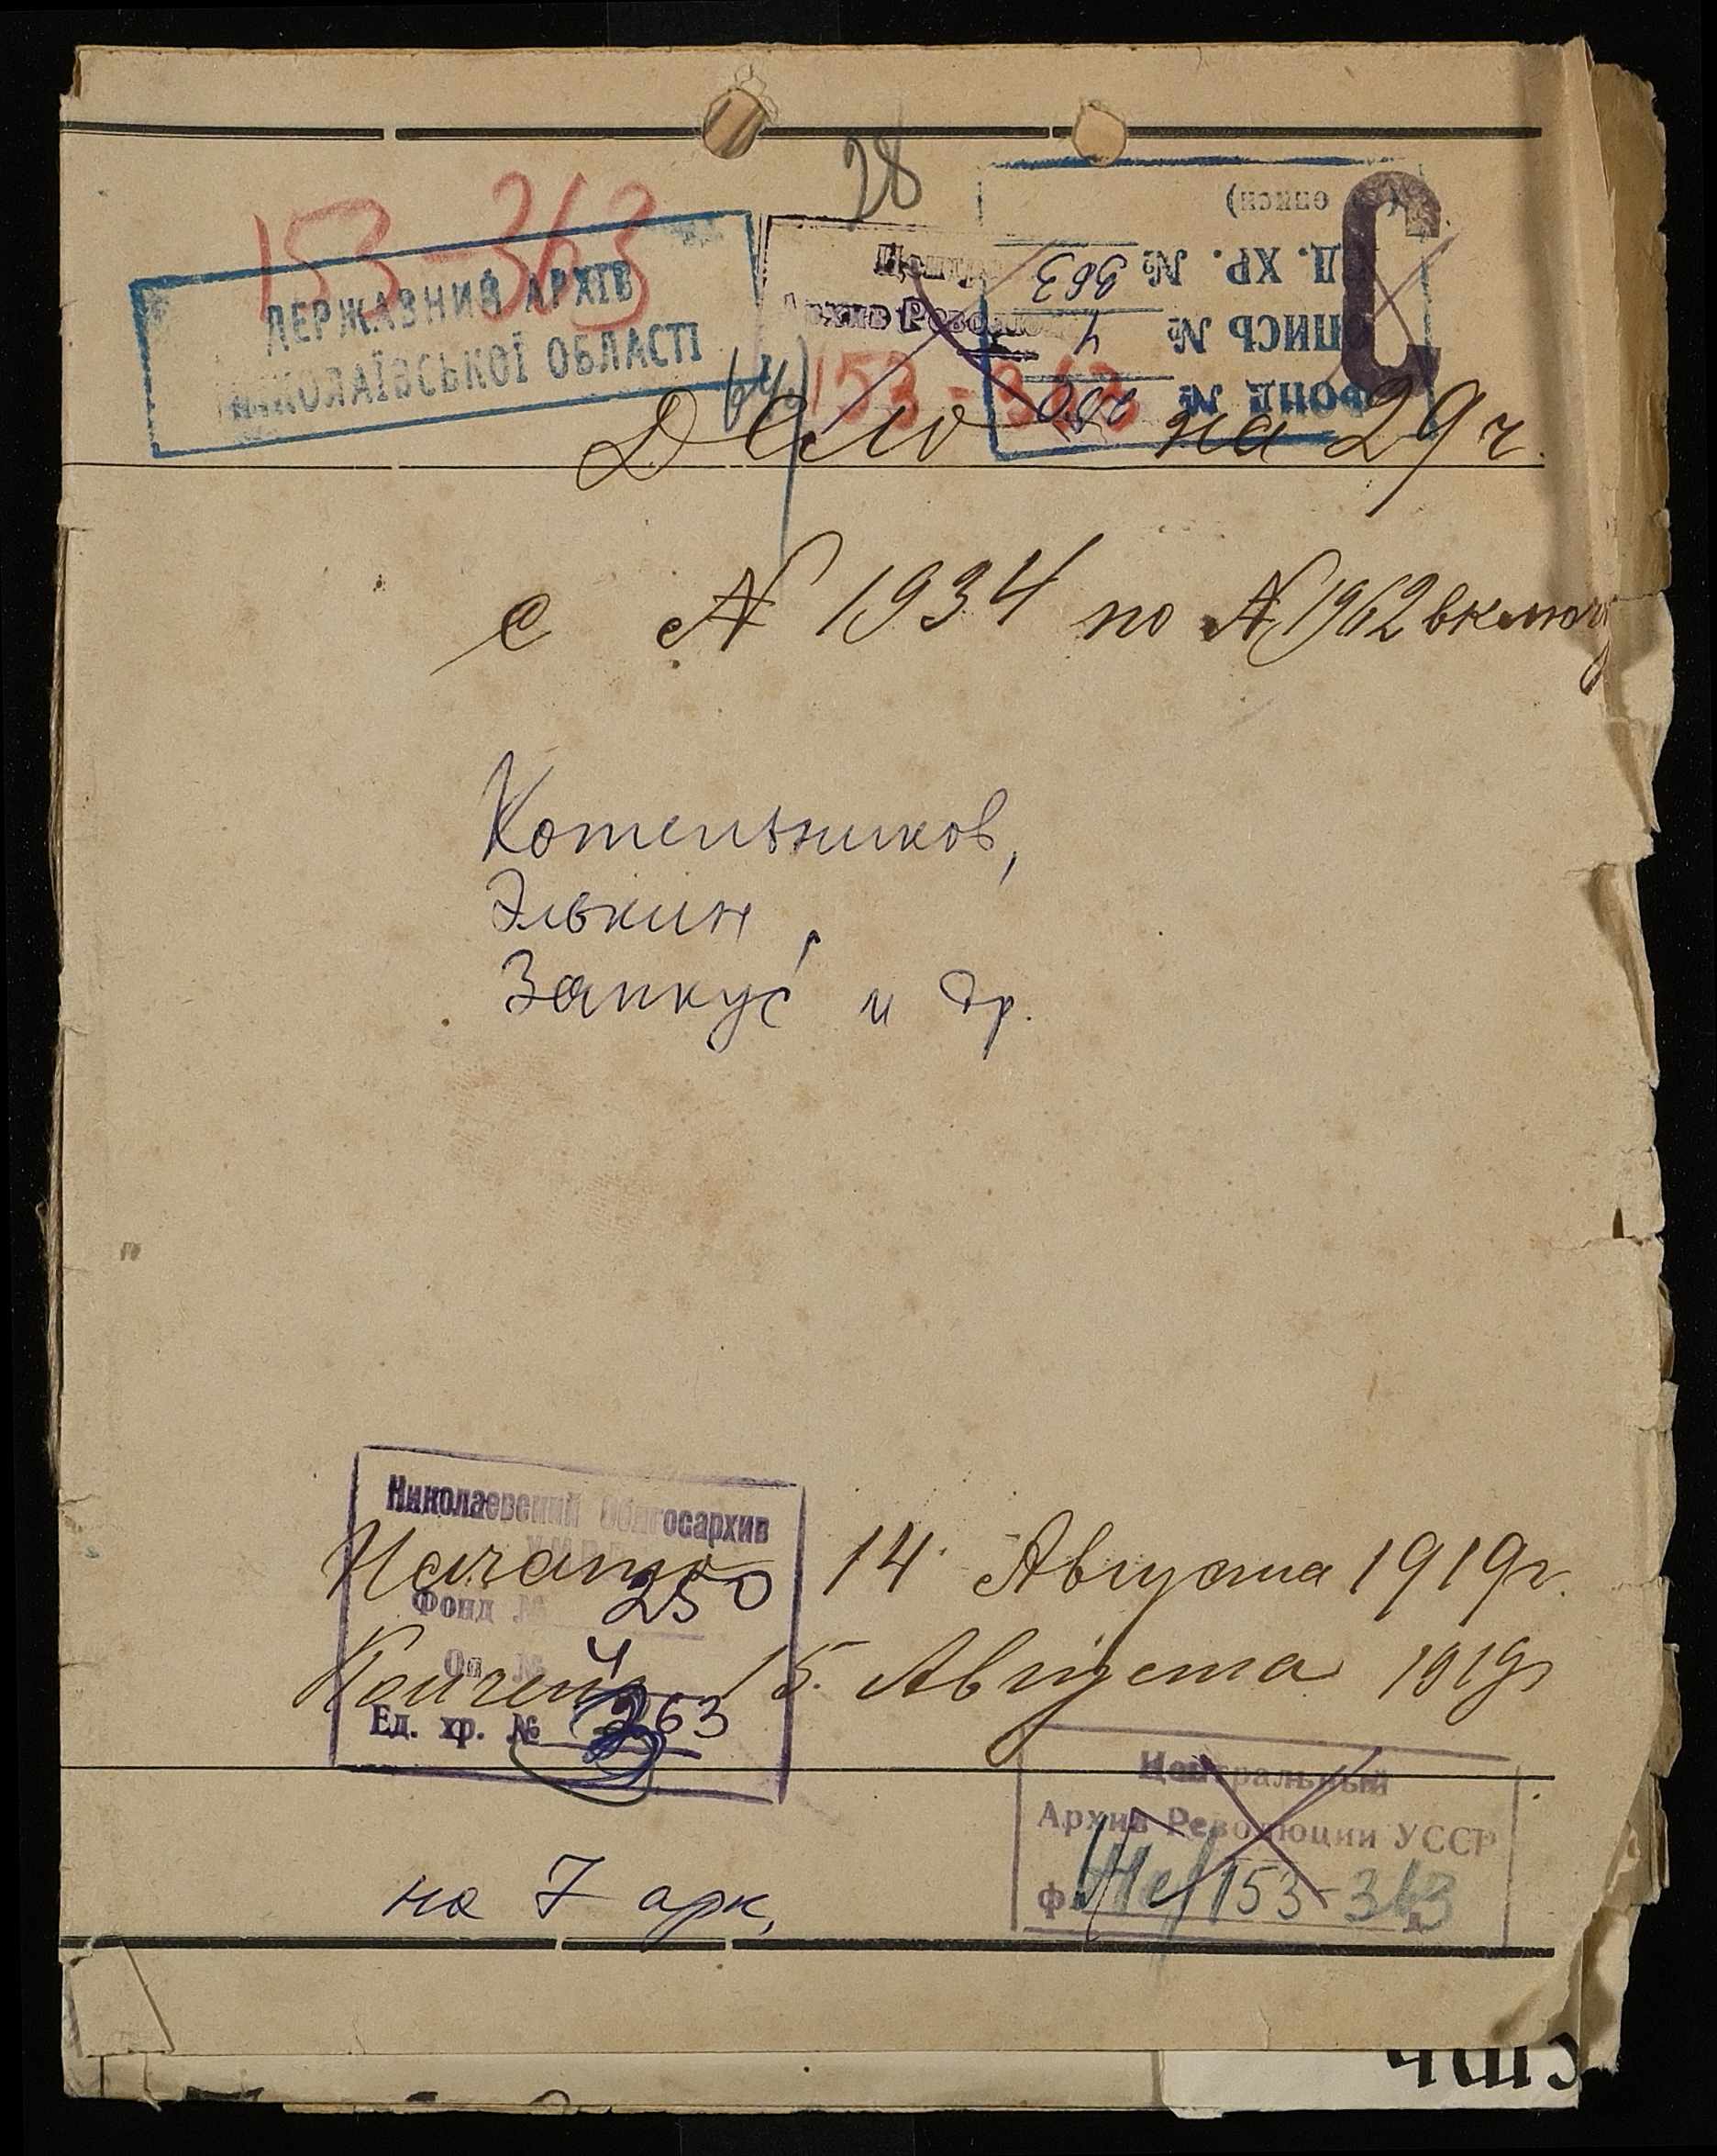 28
153-363
ДЕРЖАВНИЙ АРХІВ
МИКОЛАЇВСЬКОЇ ОБЛАСТІ
Архив Револю
153-363
ФОНД № 250
ПИСЬ № 4
Д. ХР. № 363
описи)
Дело на 29 ч.
с № 1934 по № 1962 включ
Котельников,
Элькин,
Запкус и др.
Николаевский Облгосархив
Начато 14 Августа 1919г.
Фонд № 250
Оп. № 4
15. Августа 1919г
Ед. хр. № 363
Центральный
Архив Революции УССР
153-363
на 7 арк,